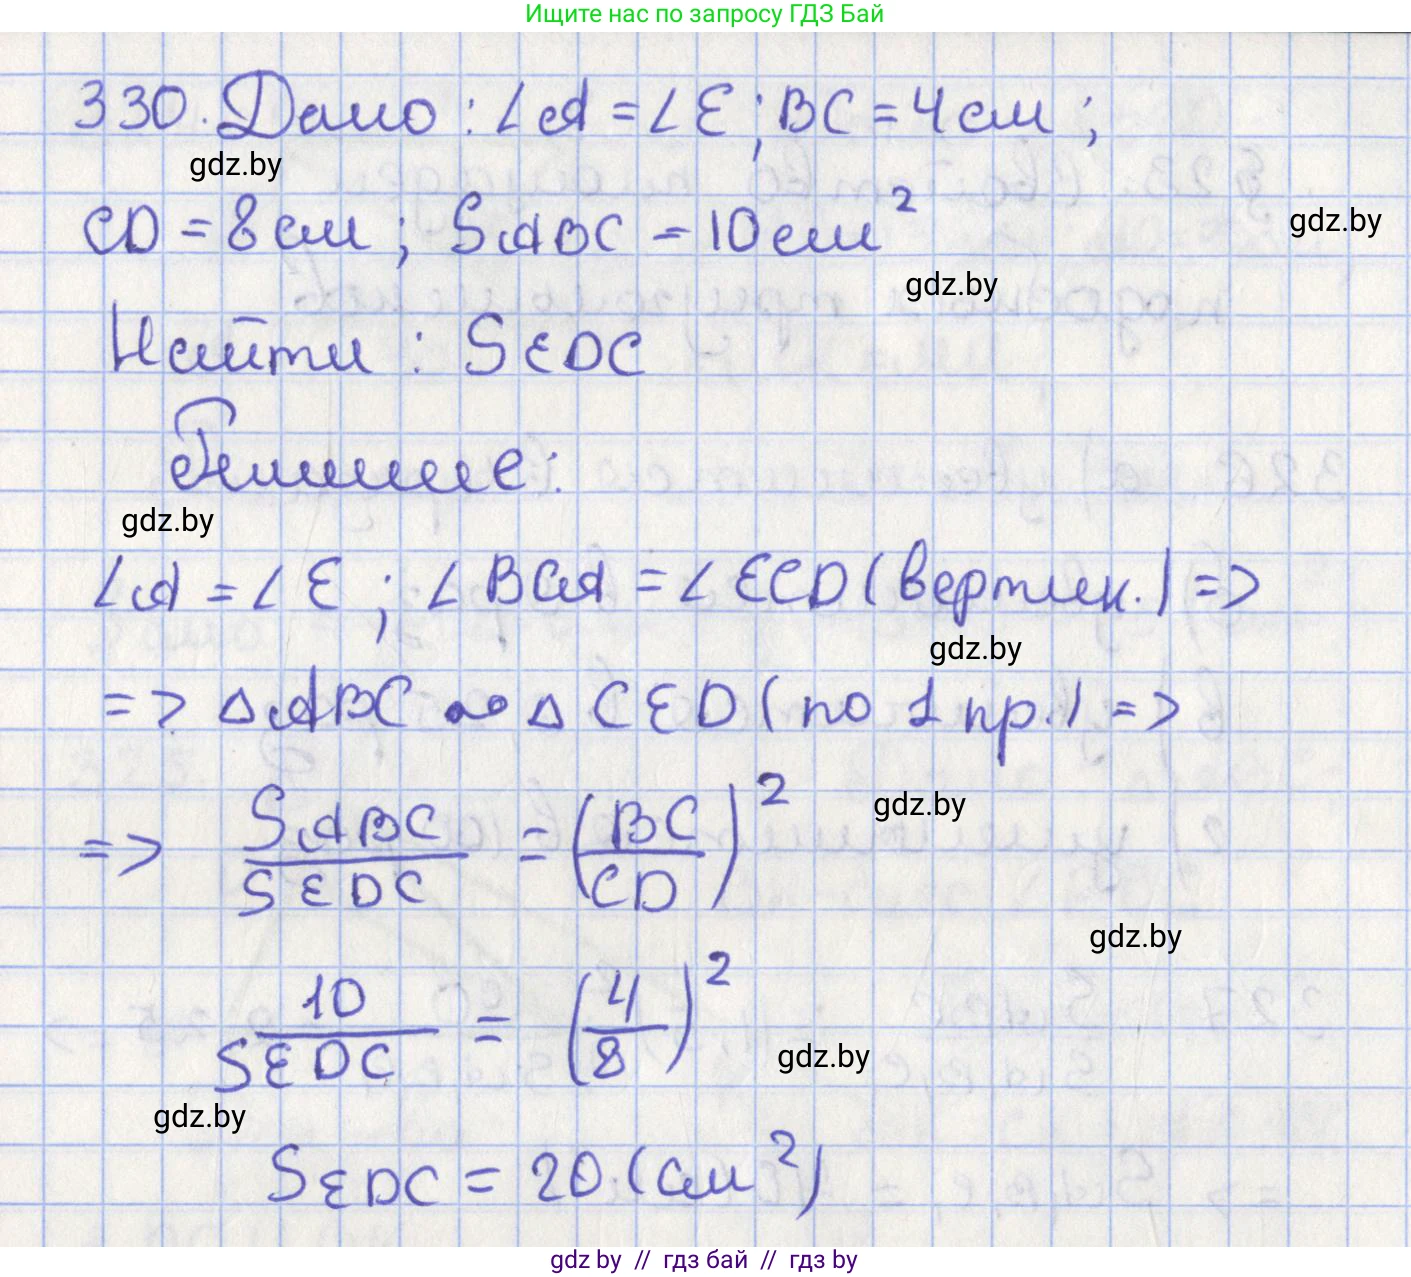 Ищите нас по запросу ГДЗ Бай
330. Дано: ∠A = ∠E; BC = 4 см;
gdz.by
CD = 8 см; SABC = 10 см²
gdz.by
gdz.by
Найти: SEDC
Решение:
gdz.by
∠A = ∠E; ∠BCA = ∠ECD (вертик.) =>
gdz.by
=> △ABC ∾ △CED (по 1 пр.) =>
=> SABC / SEDC = (BC / CD)²
gdz.by
gdz.by
10 / SEDC = (4 / 8)²
gdz.by
gdz.by
SEDC = 20 (см²)
gdz by // гдз бай // гдз by